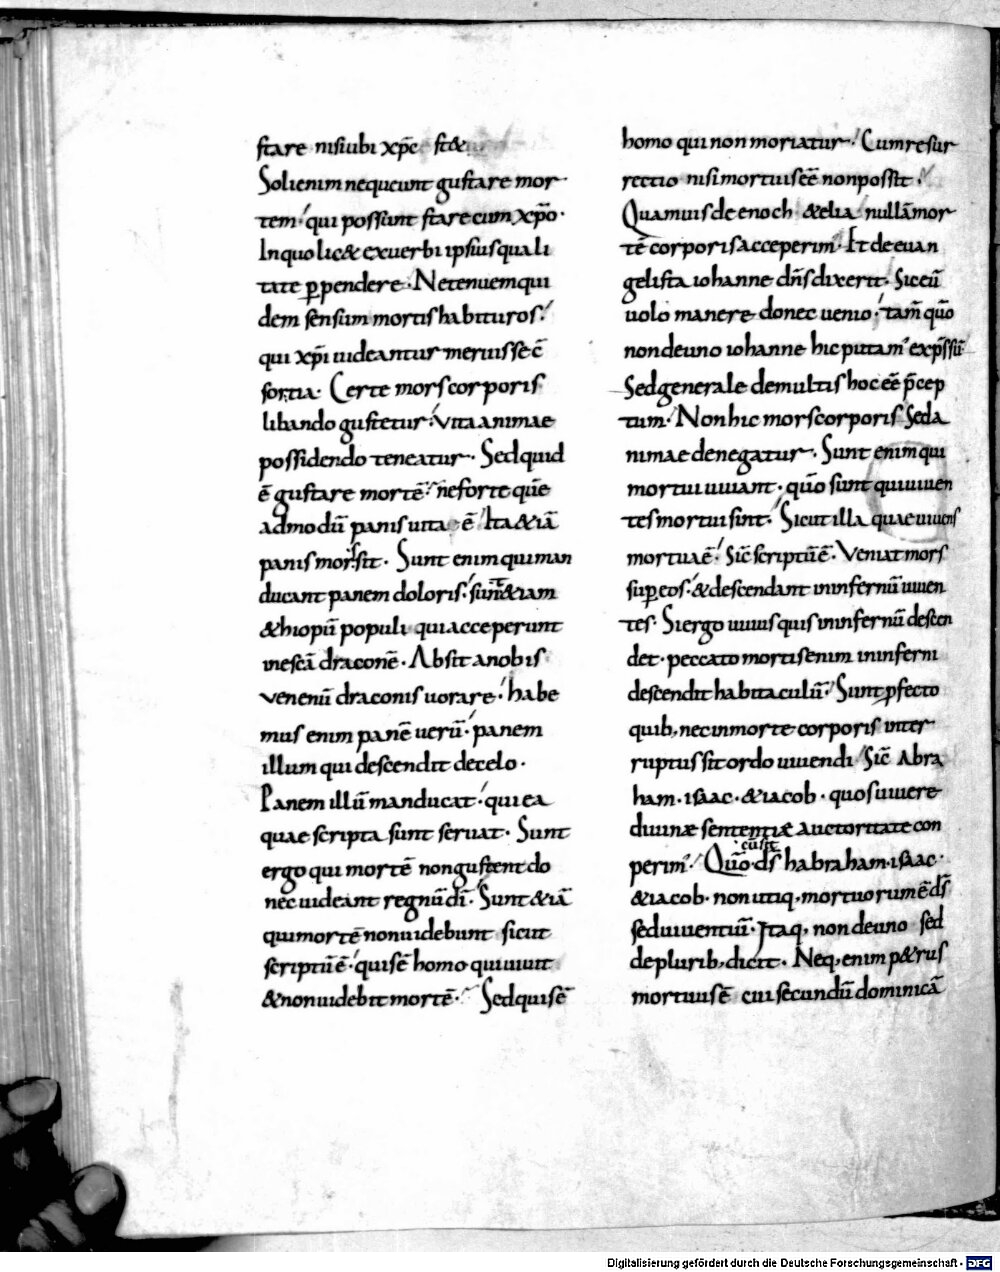 stare nisi ubi xp̄c st&
Soli enim nequeunt gustare mor
tem· qui possunt stare cum xp̄o·
In quo lic& ex uerbi ipsius quali
tate ꝑpendere· Ne tenuem qui
dem sensum mortis habituros·
qui xp̄i uideantur meruisse c̄
sortia· Certe mors corporis
libando gustetur· vita animae
possidendo teneatur· Sed quid
ē gustare mortē· ne forte quē
admodū panis uita ē Ita &iā
panis mors sit· Sunt enim qui man
ducant panem doloris· sunt &iam
&hiopū populi qui acceperunt
inescā draconē· Absit a nobis
venenū draconis uorare· habe
mus enim panē uerū· panem
illum qui descendit de celo·
Panem illū manducat· qui ea
quae scripta sunt seruat· Sunt
ergo qui mortē non gustent do
nec uideant regnū dī· Sunt &iā
qui mortē non uidebunt sicut
scriptū ē· quis ē homo qui uiuit
& non uidebit mortē· Sed quis ē
homo qui non moriatur· Cum resur
rectio nisi mortuis eē non possit·
Quamuis de enoch & elia nullā mor
tē corporis acceperim̄· Et de euan
gelista iohanne dn̄s dixerit· Sic eū
uolo manere donec uenio· tam̄ quō
non de uno iohanne hic putam̄ exp̄ssū
Sed generale de multis hoc eē p̄cep
tum· Non hic mors corporis sed a
nimae denegatur· Sunt enim qui
mortui uiuant· quō sunt qui uiuen
tes mortui sint· Sicut illa quae uiuens
mortua ē· Sic̄ scriptū ē· Veniat mors
sup eos· & descendant in infernū uiuen
tes· Si ergo uiuus quis in infernū descen
det· peccato mortis enim in inferni
descendit habitaculū· Sunt ꝓfecto
quib; nec in morte corporis inter
ruptus sit ordo uiuendi Sic̄ Abra
ham· isaac· & iacob· quos uiuere
diuinæ sententiæ auctoritate con
cū sit
perim̄· Quō ds̄ habraham· isaac·
& iacob· non utiq; mortuorum ē ds̄
sed uiuentiū· Itaq; non de uno sed
de plurib; dicit· Neq; enim p&rus
mortuus ē cui secundū dominicā
Digitalisierung gefördert durch die Deutsche Forschungsgemeinschaft - DFG